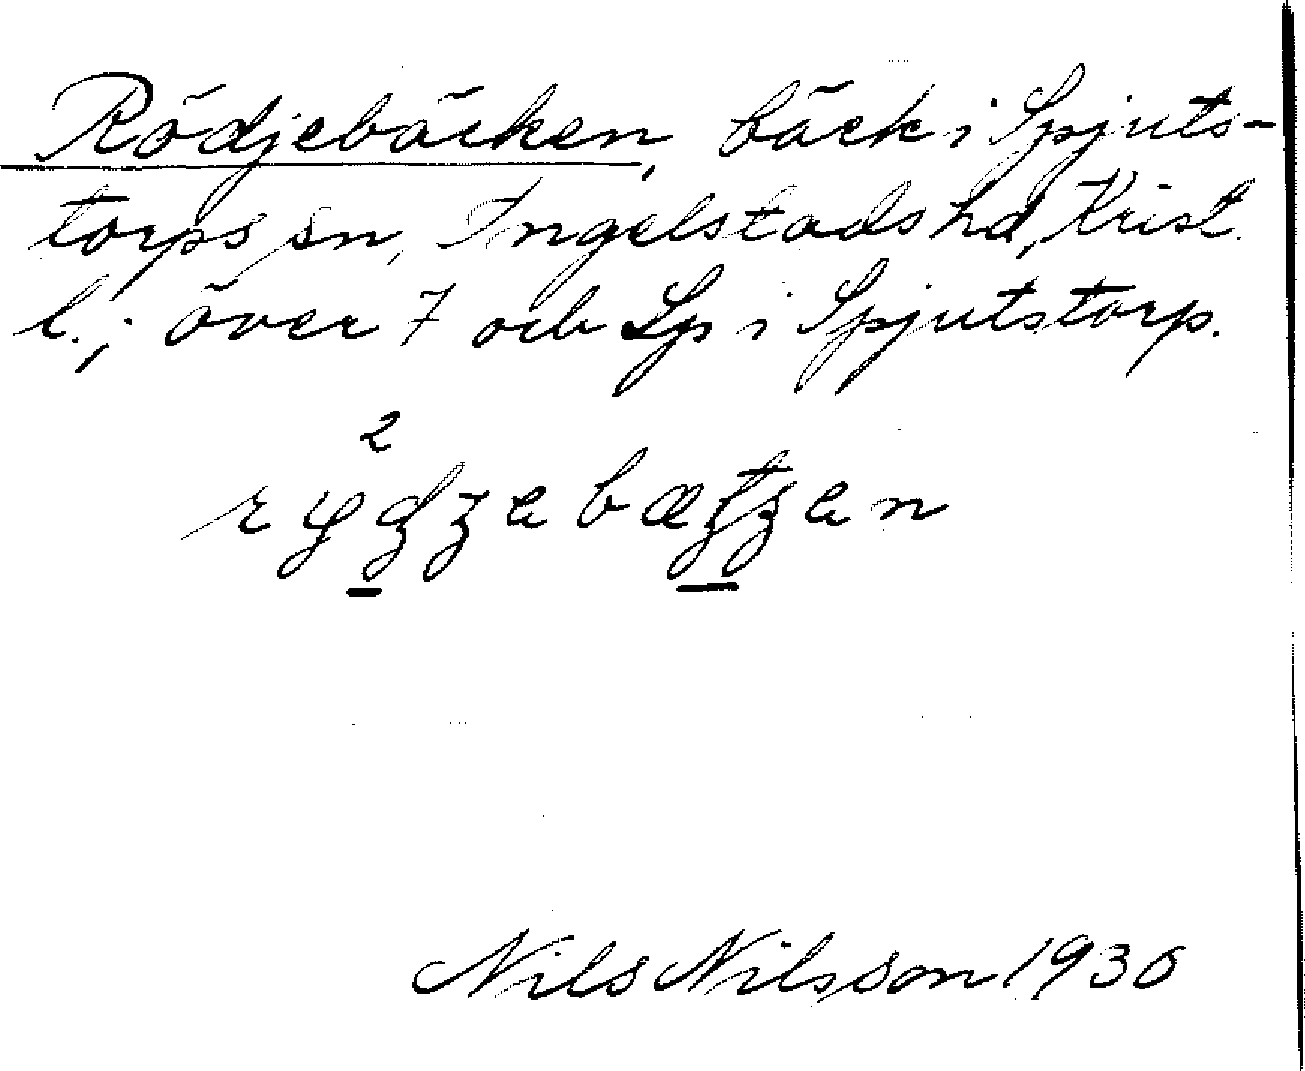 Rödjebäcken, bäck i Spjuts-
torps sn, Ingelstads hd, Krist.
l.; över 7 och Lp i Spjutstorp.
2
Nils Nilsson 1930